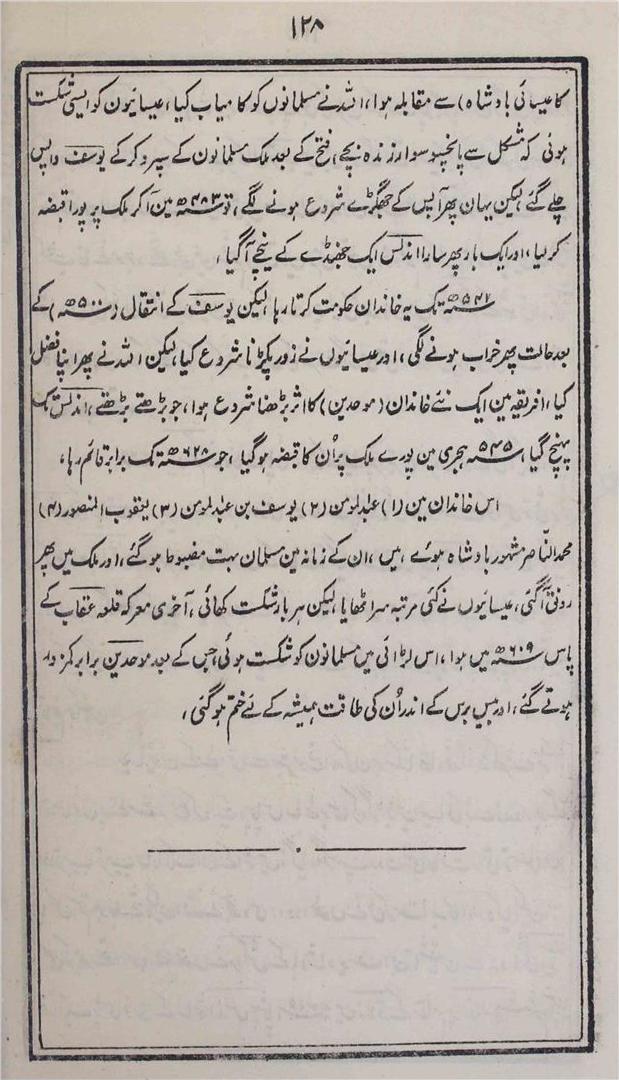 ۱۲۸
کا عیسائی بادشاہ) سے مقابلہ ہوا، اللہ نے مسلمانوں کو کامیاب کیا، عیسائیون کو ایسی شکست
ہوئی کہ مشکل سے پانچسو سوار زندہ بچے، فتح کے بعد ملک مسلمانون کے سپرد کر کے یوسف واپس
چلے گئے لیکن یہان پھر آپس کے جھگڑے شروع ہونے لگے، تو ۴۸۳ھ مین آکر ملک پر پورا قبضہ
کر لیا، اور ایک بار پھر سارا اندلس ایک جھنڈے کے نیچے آگیا،
۵۴۱ھ تک یہ خاندان حکومت کرتا رہا لیکن یوسف کے انتقال (۵۰۰ھ) کے
بعد حالت پھر خراب ہونے لگی، اور عیسائیوں نے زور پکڑنا شروع کیا لیکن اللہ نے پھر اپنا فضل
کیا، افریقہ مین ایک نئے خاندان (موحدین) کا اثر بڑھنا شروع ہوا، جو بڑھتے بڑھتے، اندلس تک
پہنچ گیا، ۵۴۵ھ ہجری مین پورے ملک پر اُن کا قبضہ ہو گیا، جو ۶۲۸ھ تک برابر قائم رہا،
اس خاندان مین (۱) عبدالمومن (۲) یوسف بن عبدالمومن (۳) یعقوب المنصور (۴)
محمد الناصر مشہور بادشاہ ہوئے ہیں، ان کے زمانہ مین مسلمان بہت مضبوط ہو گئے، اور ملک میں پھر
رونق آگئی، عیسائیوں نے کئی مرتبہ سر اٹھایا لیکن ہر بار شکست کھائی، آخری معرکہ قلعہ عقاب کے
پاس ۶۰۹ھ میں ہوا، اس لڑائی میں مسلمانون کو شکست ہوئی، جس کے بعد موحدین برابر کمزور
ہوتے گئے، اور بیس برس کے اندر اُن کی طاقت ہمیشہ کے لئے ختم ہو گئی،